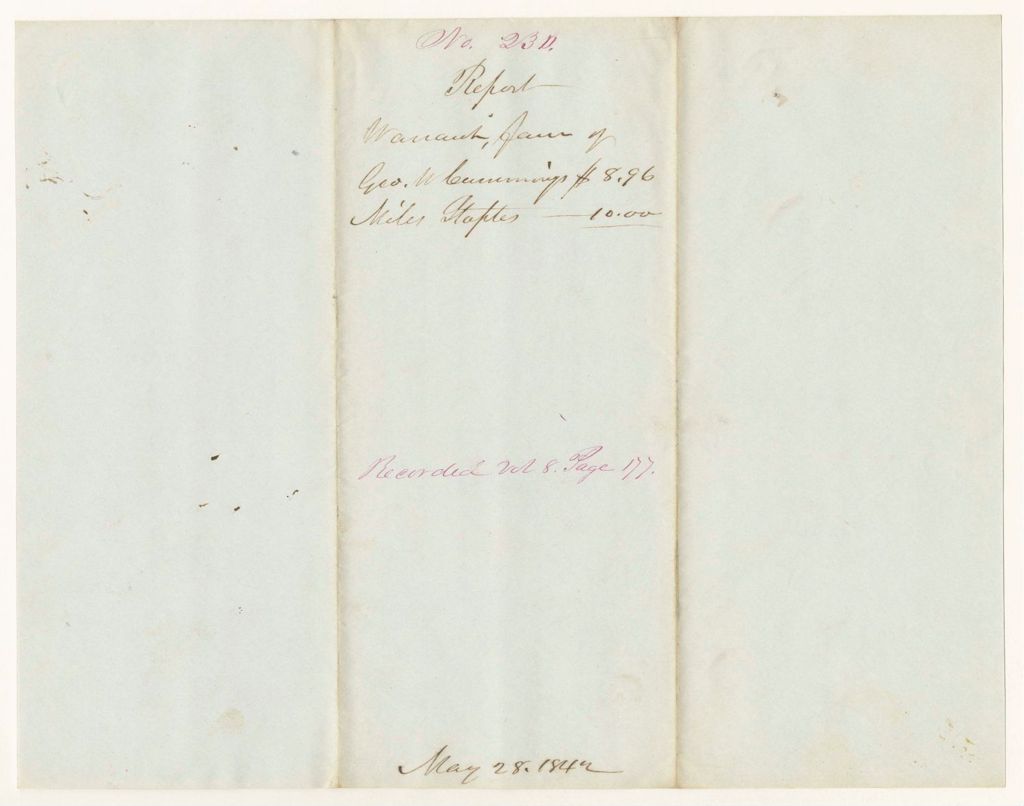 No. 230.
Report
Warrant, favor of
Geo. W Cummings $ 8.96
Miles Staples — 10.00
Recorded Vol 8. Page 177.
May 28. 1842